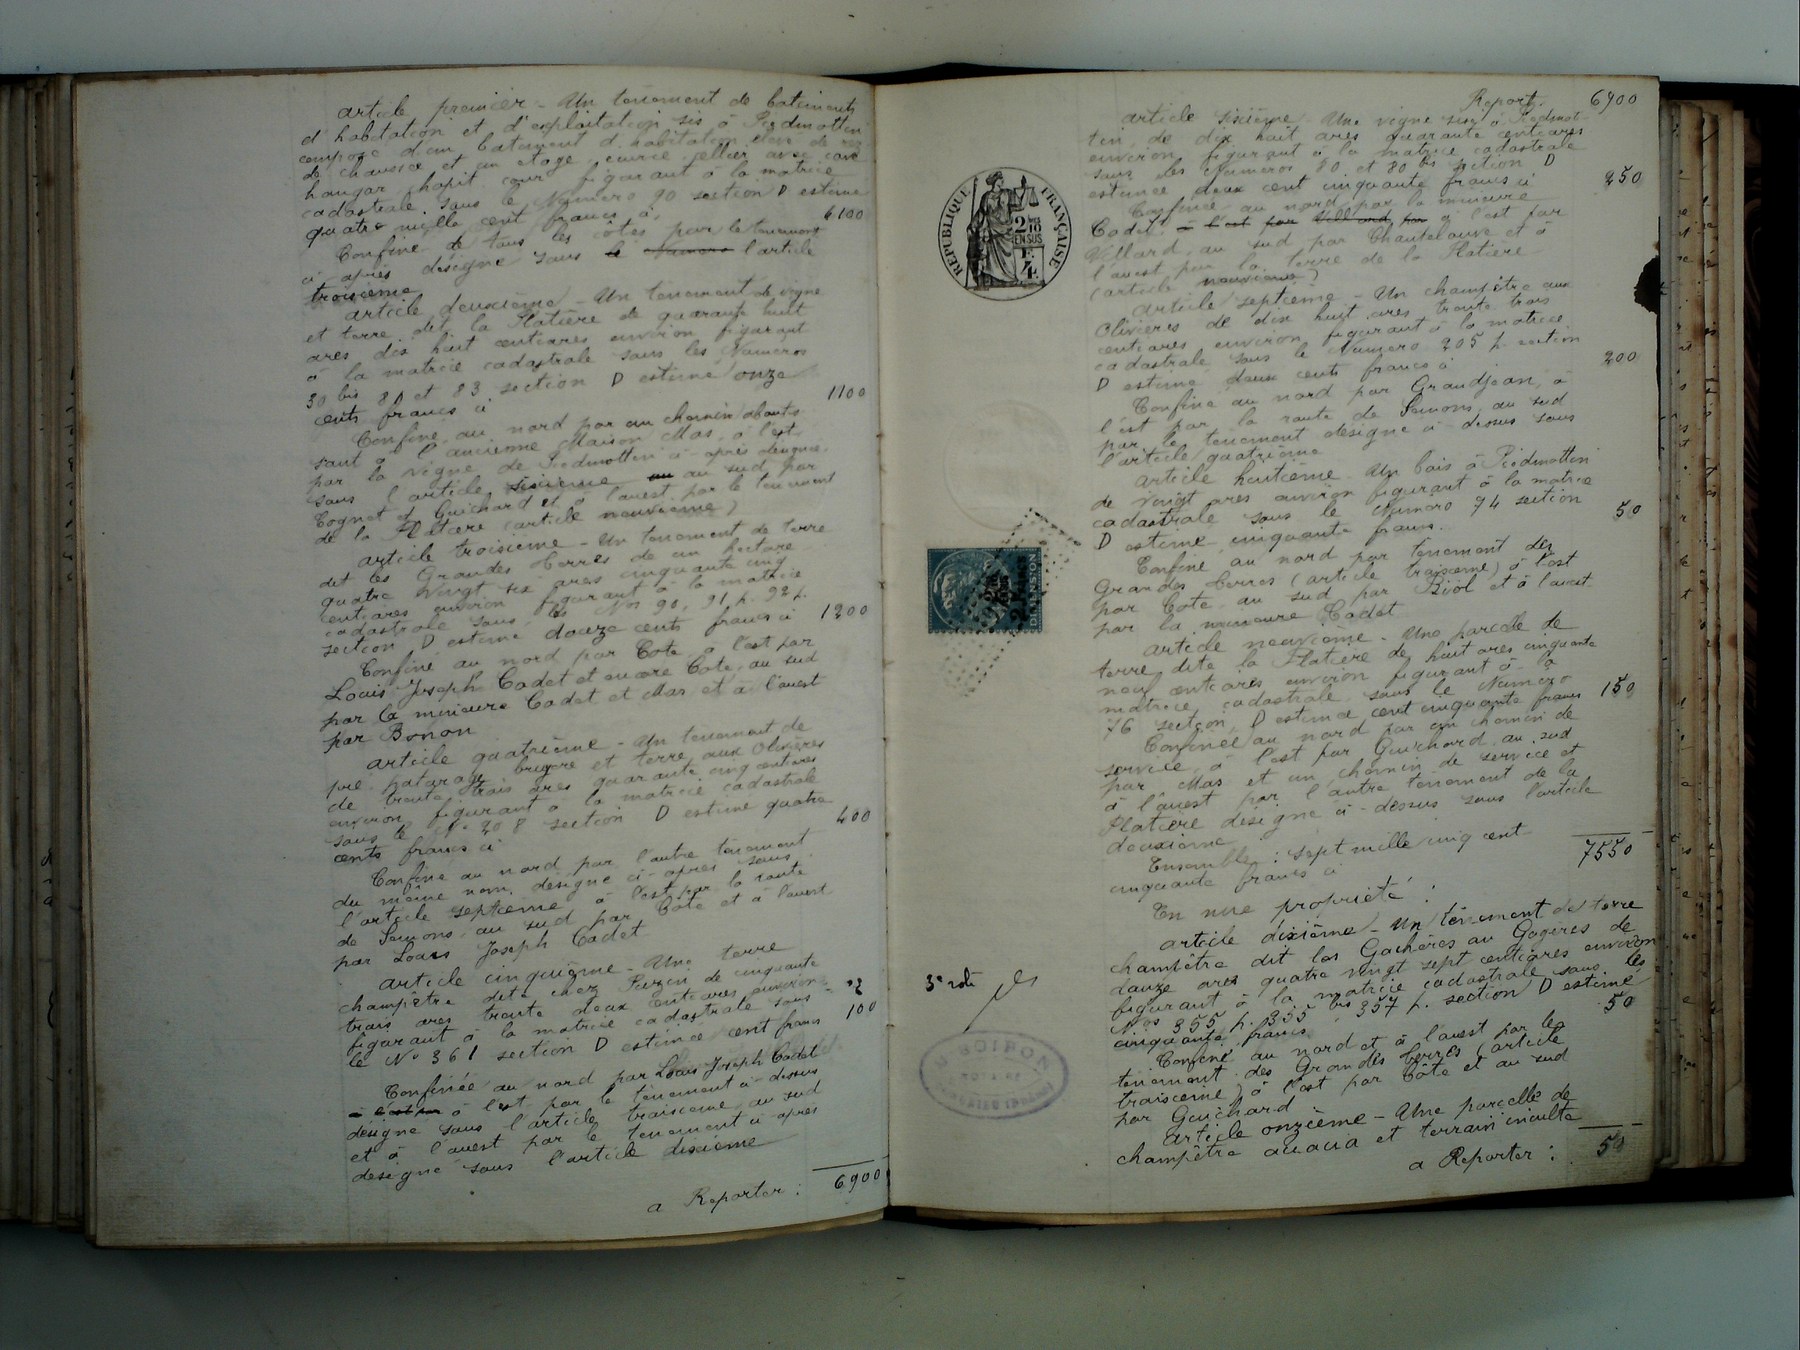 article premier - Un tènement de batiments
d'habitation et d'exploitation sis à Piedmottin
composé d'un batiment d'habitation élevé de rez
de chaussée et un étage, écurie cellier avec cave
hangar chapit cour, figurant à la matrice
cadastrale sous le Numéro 90 section D estimé
quatre mille cent francs ci 4100
Confine de tous les côtés par le tènement
ci après désigné sous le Numero l'article
troisième
article deuxième - Un tènement de vigne
et terre dit la Platière de quarante huit
ares dix huit centiares environ figurant
à la matrice cadastrale sous les Numéros
80 bis 81 et 83 section D estimé onze
cents francs ci 1100
Confine au nord par un chemin aboutis
sant à l'ancienne Maison Mas, à l'est
par la vigne de Piedmottin ci-après désignée
sous l'article sixième au au sud par
Cognet et Guichard et à l'ouest par le tènement
de la Platière (article neuvième)
article troisième - Un tènement de terre
dit les Grandes Terres de un hectare
quatre Vingt six ares cinquante cinq
centiares environ figurant à la matrice
cadastrale sous les Nos 90, 91 p. 92 p.
section D estimé douze cents francs ci 1200
Confine au nord par Cote, à l'est par
Louis Joseph Cadet et encore Cote, au sud
par la mineure Cadet et Mas et à l'ouest
par Bonon
article quatrième - Un tènement de
pré paturage bruyère et terre aux Olivières
de trente trois ares quarante cinq centiares
environ figurant à la matrice cadastrale
sous le N° 208 section D estimé quatre
cents francs ci 400
Confine au nord par l'autre tènement
du même nom désigné ci-après sous
l'article septième à l'est par la route
de Semons, au sud par Côte et à l'ouest
par Louis Joseph Cadet
article cinquième - Une terre
champêtre dite chez Suzin de cinquante
trois ares trente deux centiares environ
figurant à la matrice cadastrale sous
le N° 361 section D estimée cent francs 100
Confinée au nord par Louis Joseph Cadet
à l'est par à l'est par le tènement ci-dessus
désigné sous l'article troisième au sud
et à l'ouest par le tènement ci-après
désigné sous l'article dixième
a Reporter : 6900
Report. 6900
article sixième - Une vigne sise à Piedmot
tin, de dix huit ares quarante centiares
environ figurant à la matrice cadastrale
sous les Numéros 80 et 80 bis section D
estimée deux cent cinquante francs ci 250
Confinée au nord par la mineure
Cadet à l'est par Villard par à l'est par
Villard, au sud par Chantelouve et à
l'ouest par la terre de la Platière
(article neuvième)
article septième - Un champêtre aux
Olivières de dix huit ares trente trois
centiares environ figurant à la matrice
cadastrale sous le Numéro 205 p. section
D estimé deux cents francs ci 200
Confine au nord par Grandjean, à
l'est par la route de Semons, au sud
par le tènement désigné ci-dessus sous
l'article quatrième
article huitième - Un bois à Piedmottin
de Vingt ares environ figurant à la matrice
cadastrale sous le Numéro 74 section
D estimé cinquante francs. 50
Confine au nord par tènement des
Grandes Terres (article troisième) à l'est
par Cote, au sud par Biol et à l'ouest
par la mineure Cadet
article neuvième - Une parcelle de
terre dite la Platière de huit ares cinquante
neuf centiares environ figurant à la
matrice cadastrale sous le Numéro
76 section D estimée cent cinquante francs 150
Confinée au nord par un chemin de
service, à l'est par Guichard, au sud
par Mas et un chemin de service et
à l'ouest par l'autre tènement de la
Platière désigné ci-dessus sous l'article
deuxième
Ensemble : sept mille cinq cent
cinquante francs ci 7550
En nue propriété :
article dixième - Un tènement de terre
champêtre dit les Gachères au Gagères de
douze ares quatre vingt sept centiares environ
figurant à la matrice cadastrale sous les
Nos 355 p. 355 bis 357 p. section D estimé
cinquante francs 50
Confine au nord et à l'ouest par le
tènement des Grandes Terres (article
troisième) à l'est par Côte et au sud
par Guichard
article onzième - Une parcelle de
champêtre acacia et terrain inculte
a Reporter : 50
REPUBLIQUE FRANÇAISE
2 18
EN SUS
DIMENSION
3e rôle
BOIRON
NOTAIRE